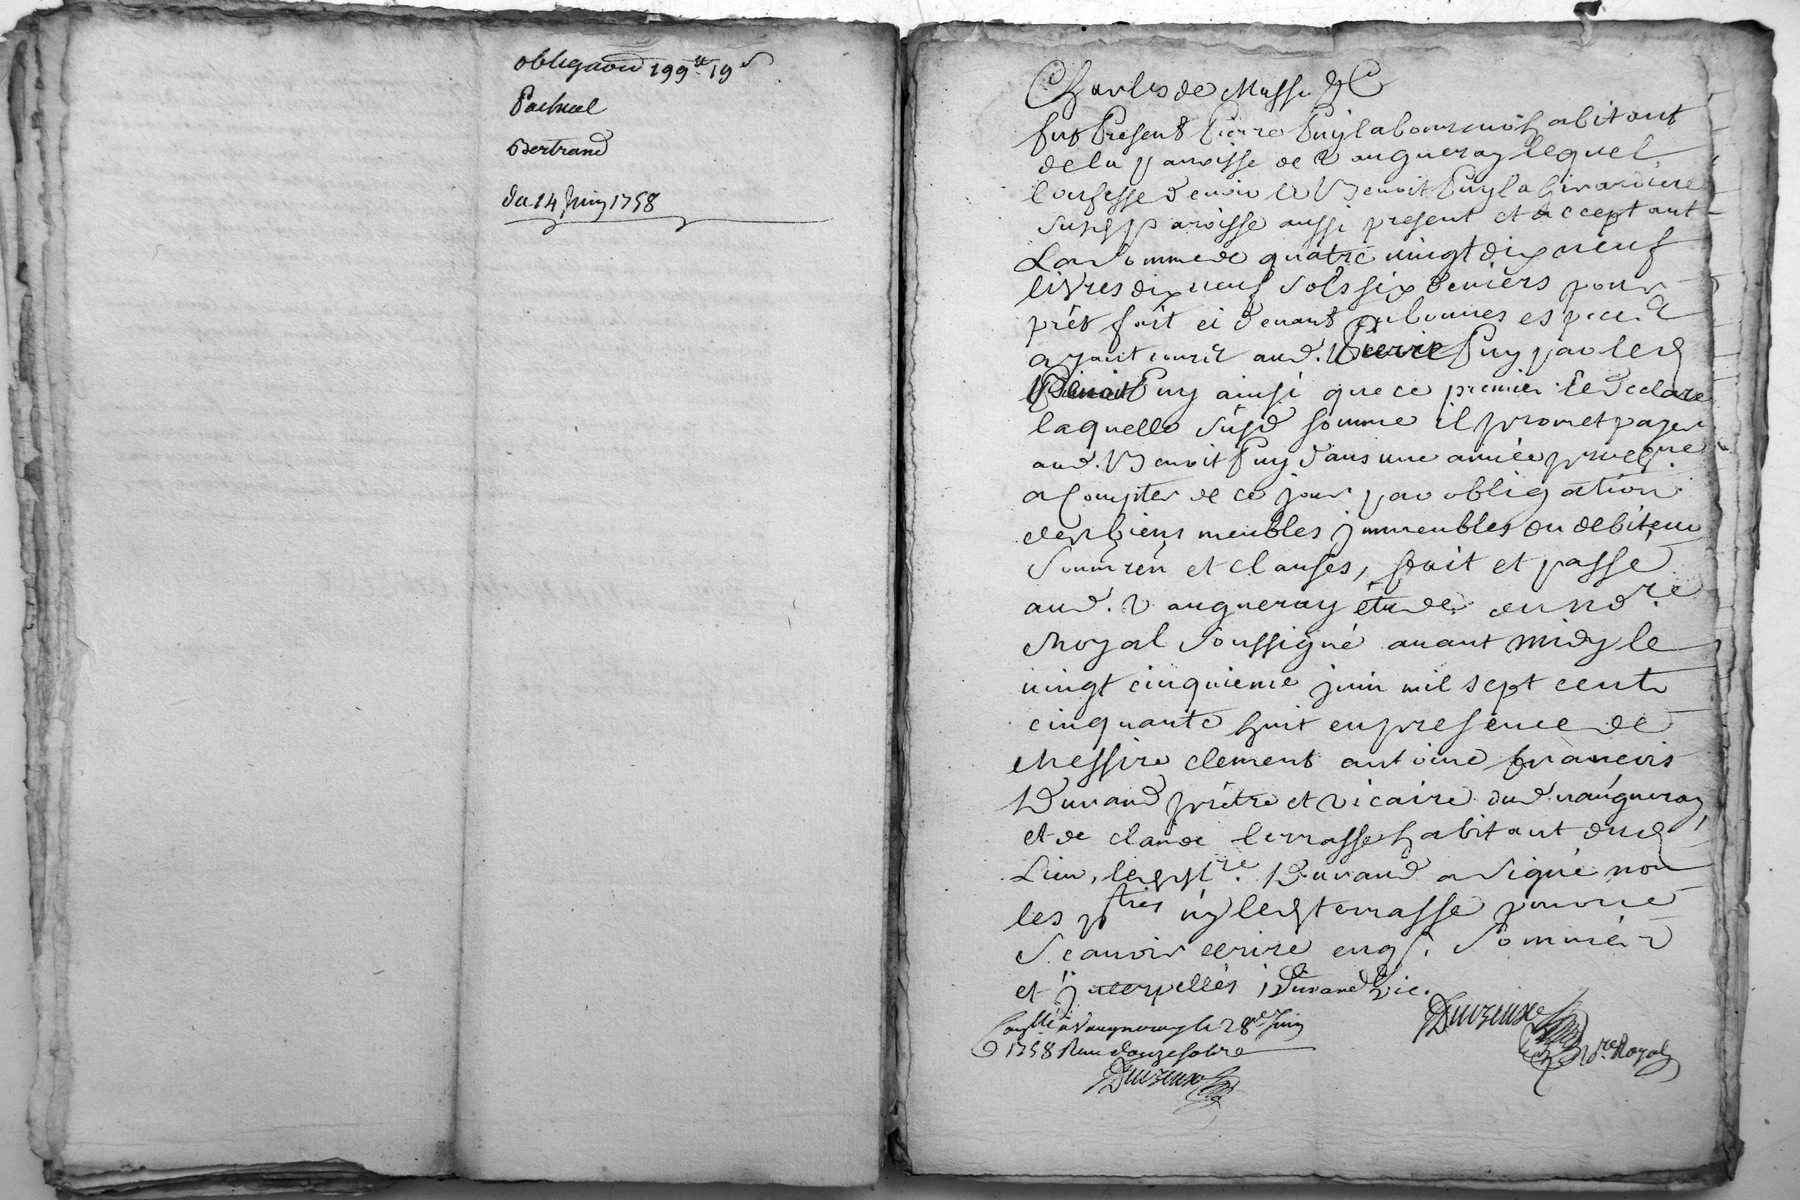 obligaon 199tt 19s
Pachuel
Bertrand
du 14 Juin 1758
Charles de Masso &C
fut Present Pierre Puy laboureur habitant
de la paroisse de Vaugneray lequel
Confesse devoir a Benoit Puy la Girardiere
susd paroisse aussi present et acceptant
La somme de quatre vingt dix neuf
livres dix neuf sols six deniers pour
prêt fait ci devant en bonnes especes
ayant cours aud. Pierre Puy par led
Benoit Puy ainsi que ce premier le declare
laquelle susd somme il promet payer
aud. Benoit Puy dans une année
a Compter de ce jour par obligation
de ses biens meubles immeubles du debiteur
et clauses, fait et passé
aud. Vaugneray étude du nore
Royal soussigné avant midy le
vingt cinquieme juin mil sept cent
cinquante huit en presence de
Messire clement antoine françois
Durand prêtre et vicaire dud. vaugneray
et de claude terrasse habitant dud
Lieu, led sr Durand a signé non
les pties ny led terrasse pour ne
scavoir ecrire enqs. sommés
et interpellés Durand vic.
Conllé a Vaugneray le 28e Juin
1758 Recu douze sols
nre Royal